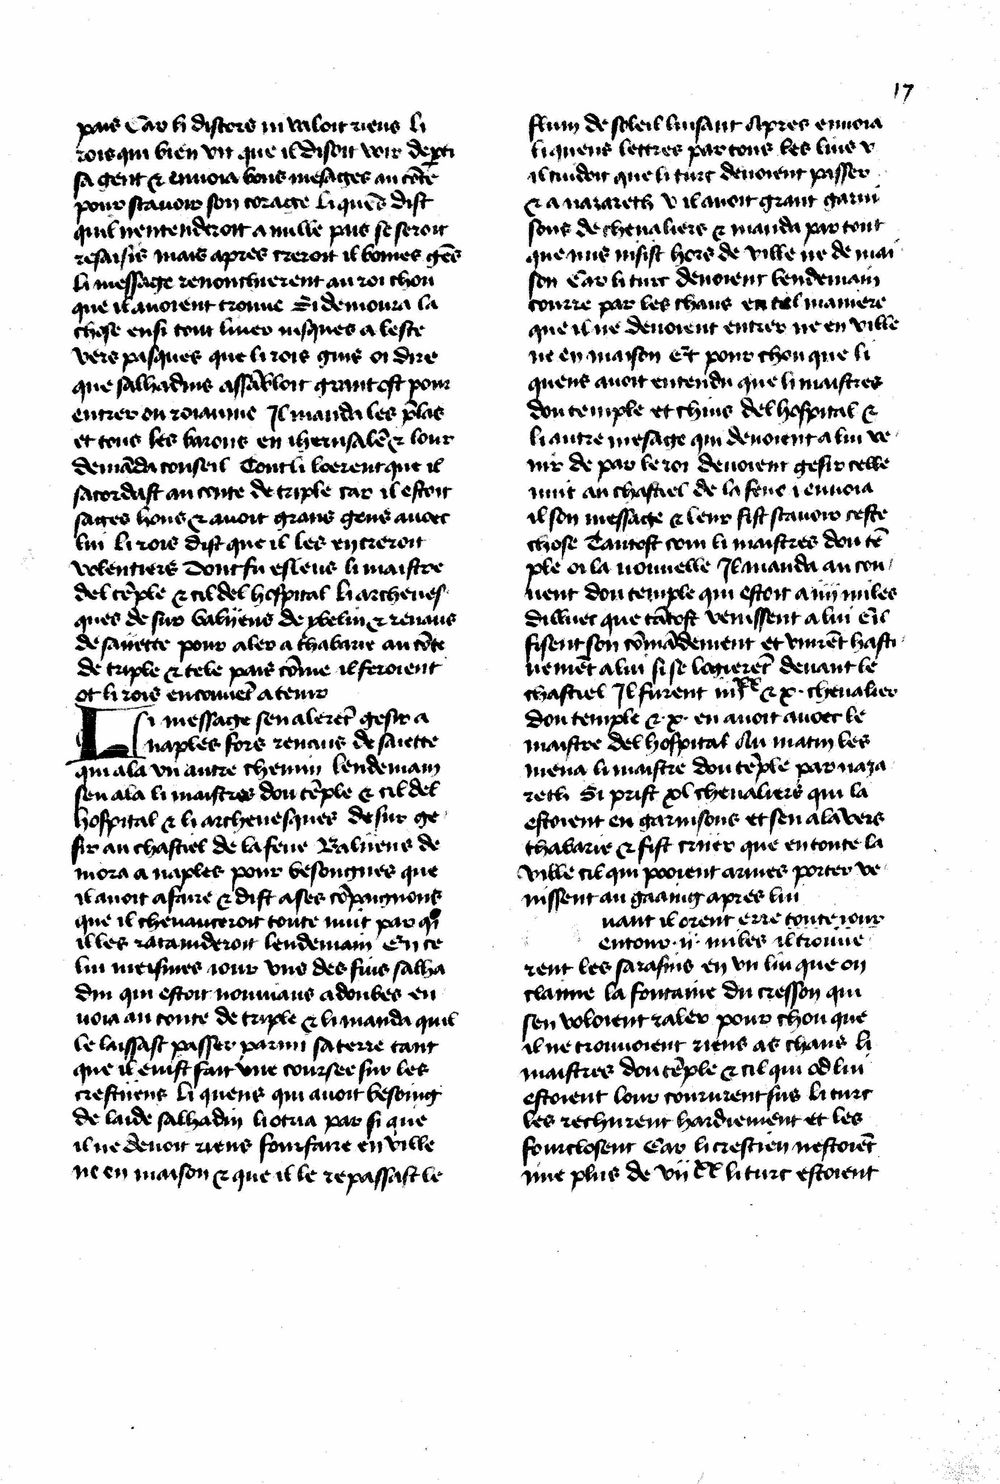 17
pais Car li discors ni valoit riens li
rois qui bien vit que il disoit voir depti
sa gent & envoia bons mesages au cōte
pour scavoir son corage li quēs dist
quil nentenderoit a nulle pais se seroit
resaisis mais apres creroit il bonnes gēs
li message renonchierent au roi chou
que il avoient trouve Si demoura la
chose ensi tout liver jusques a leste
vers pasques que li rois guis oi dire
que salhadins assābloit grant ost pour
entrer ou roiaume Il manda les p̄las
et tous les barons en iherusalē & lour
demāda conseil Tout li loerent que il
sacordast au conte de triple car il estoit
sages hons & avoit grans gens avoec
lui li rois dist que il les en creroit
volentiers Dont fu esleus li maistre
del tēple & cil del hospital li archeves
ques de sur baliiens de ybelin & renaus
de saiiette pour aler a thabarie au cōte
de triple & tele pais cōme il feroient
ot li rois en couvēt a tenir
Li message sen alerēt gesir a
naples fors renaus de saiette
qui ala un autre chemin lendemain
sen ala li maistres dou tēple & cil del
hospital & li archevesques de sur ge
sir au chastiel de la feve Baliiens de
mora a naples pour besongnes que
il avoit a faire & dist a ses cōpaignons
que il chevauceroit toute nuit par qi
il les rataindroit lendemain En ce
lui meismes jour uns des fius salha
din qui estoit nouviaus adoubes en
voia au conte de triple & li manda quil
le laissast passer parmi sa terre tant
que il euist fait une coursee sur les
crestiiens li quens qui avoit besoing
de laide salhadin li otria par si que
il ne devoit riens fourfaire en ville
ne en maison & que il le repassast le
flum de soleil luisant Apres envoia
li quens lettres par tous les lius u
il cuidoit que li turc devoient passer
& a nazareth u il avoit grant garni
sons de chevaliers & manda par tout
que nus nisist hors de ville ne de mai
son Car li turc devoient lendemain
courre par les chans en tel maniere
que il ne devoient entrer ne en ville
ne en maison Et pour chou que li
quens avoit entendu que li maistres
dou temple et chius del hospital &
li autre mesage qui devoient a lui ve
nir de par le roi devoient gesir celle
nuit au chastiel de la feve i envoia
il son message & leur fist scavoir ceste
chose Tantost com li maistres dou tē
ple oi la nouvelle Il manda au cou
vent dou temple qui estoit a iiij miles
dilluec que tātost venissent a lui Cil
fisent son cōmādement et vinrēt hasti
vemēt a lui si se logierēt devant le
chastiel Il furent iiijxx & x chevalier
dou temple & x en avoit avoec le
maistre del hospital Au matin les
mena li maistre dou tēple par naza
reth Si prist xl chevaliers qui la
estoient en garnisons et sen ala vers
thabarie & fist criier que en toute la
ville cil qui pooient armes porter ve
nissent au gaaing apres lui
uant il orent erre toute jour
entour ij miles il trouve
rent les sarasins en un liu que on
claime la fontaine du cresson qui
sen voloient raler pour chou que
il ne trouvoient riens as chans li
maistres dou tēple & cil qui od lui
estoient lour coururent sus li turc
les rechurent hardiement et les
fourclosent Car li crestien nestoiēt
mie plus de viixx li turc estoient